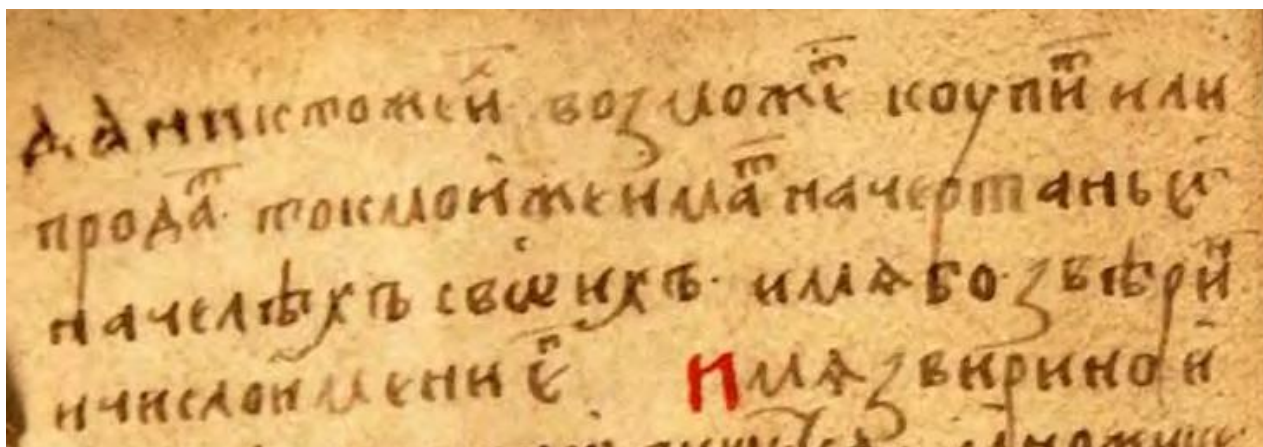 да никтоже и҆ возможеⷮ коупиⷮ или
продаⷮ. токмо иже имаⷮ начертанье
на челѣхъ своихъ. имѧ бо звѣриⷩ
и число имени еⷢ. Имѧ звирино и